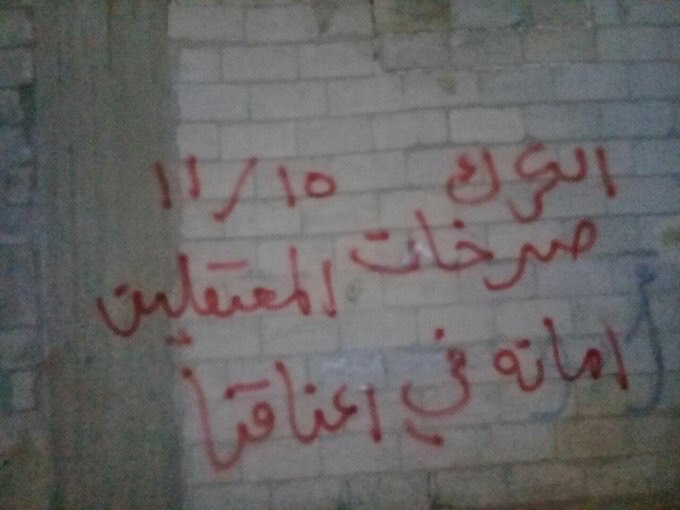 الكرك ١٥/١١
صرخات المعتقلين
امانه في اعناقنا